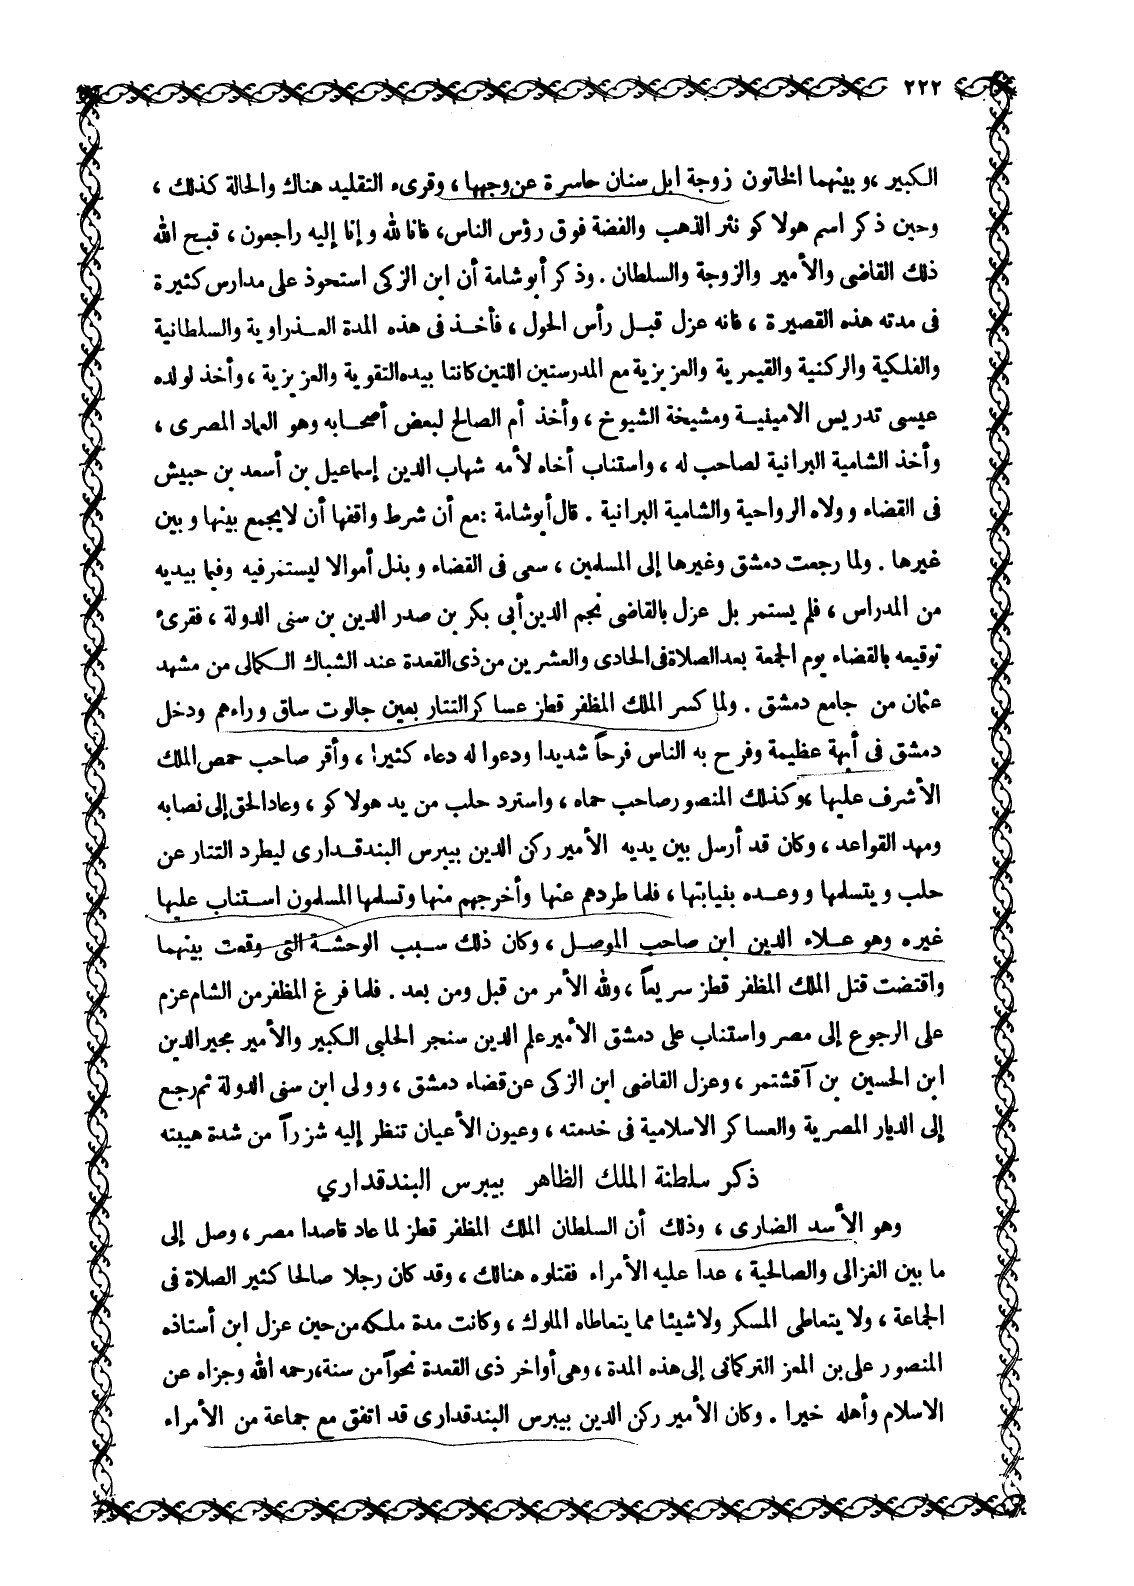 ٢٢٢
الكبير ، و بينهما الخاتون زوجة ابل سنان حاسرة عن وجهها ، وقرىء التقليد هناك والحالة كذلك ،
وحين ذكر اسم هولاكو نثر الذهب والفضة فوق رؤس الناس ، فانا لله و إنا إليه راجعون ، قبح الله
ذلك القاضى والأمير والزوجة والسلطان . وذكر أبو شامة أن ابن الزكى استحوذ على مدارس كثيرة
فى مدته هذه القصيرة ، فانه عزل قبل رأس الحول ، فأخذ فى هذه المدة العذراوية والسلطانية
والفلكية والركنية والقيمرية والعزيزية مع المدرستين اللتين كانتا بيده التقوية والعزيزية ، وأخذ لولده
عيسى تدريس الامينية ومشيخة الشيوخ ، وأخذ أم الصالح لبعض أصحابه وهو العماد المصرى ،
وأخذ الشامية البرانية لصاحب له ، واستناب أخاه لأمه شهاب الدين إسماعيل بن أسعد بن حبيش
فى القضاء و ولاه الرواحية والشامية البرانية . قال أبو شامة : مع أن شرط واقفها أن لا يجمع بينها و بين
غيرها . ولما رجعت دمشق وغيرها إلى المسلمين ، سعى فى القضاء و بذل أموالا ليستمر فيه وفيما بيديه
من المدراس ، فلم يستمر بل عزل بالقاضى نجم الدين أبى بكر بن صدر الدين بن سنى الدولة ، فقرئ
توقيعه بالقضاء يوم الجمعة بعد الصلاة فى الحادى والعشرين من ذى القعدة عند الشباك الكمالى من مشهد
عثمان من جامع دمشق . ولما كسر الملك المظفر قطز عساكر التتار بعين جالوت ساق وراءهم ودخل
دمشق فى أبهة عظيمة وفرح به الناس فرحاً شديدا ودعوا له دعاء كثيرا ، وأقر صاحب حمص الملك
الأشرف عليها ، وكذلك المنصور صاحب حماه ، واسترد حلب من يد هولاكو ، وعاد الحق إلى نصابه
ومهد القواعد ، وكان قد أرسل بين يديه الأمير ركن الدين بيبرس البندقدارى ليطرد التتار عن
حلب و يتسلمها و وعده بنيابتها ، فلما طردهم عنها وأخرجهم منها وتسلمها المسلمون استناب عليها
غيره وهو علاء الدين ابن صاحب الموصل ، وكان ذلك سبب الوحشة التى وقعت بينهما
واقتضت قتل الملك المظفر قطز سريعاً ، ولله الأمر من قبل ومن بعد . فلما فرغ المظفر من الشام عزم
على الرجوع إلى مصر واستناب على دمشق الأمير علم الدين سنجر الحلبى الكبير والأمير مجير الدين
ابن الحسين بن آقشتمر ، وعزل القاضى ابن الزكى عن قضاء دمشق ، و ولى ابن سنى الدولة ثم رجع
إلى الديار المصرية والعساكر الاسلامية فى خدمته ، وعيون الأعيان تنظر إليه شزراً من شدة هيبته
ذكر سلطنة الملك الظاهر بيبرس البندقداري
وهو الأسد الضارى ، وذلك أن السلطان الملك المظفر قطز لما عاد قاصدا مصر ، وصل إلى
ما بين الغزالى والصالحية ، عدا عليه الأمراء فقتلوه هنالك ، وقد كان رجلا صالحا كثير الصلاة فى
الجماعة ، ولا يتعاطى المسكر ولا شيئا مما يتعاطاه الملوك ، وكانت مدة ملكه من حين عزل ابن أستاذه
المنصور على بن المعز التركمانى إلى هذه المدة ، وهى أواخر ذى القعدة نحواً من سنة ، رحمه الله وجزاه عن
الاسلام وأهله خيرا . وكان الأمير ركن الدين بيبرس البندقدارى قد اتفق مع جماعة من الأمراء